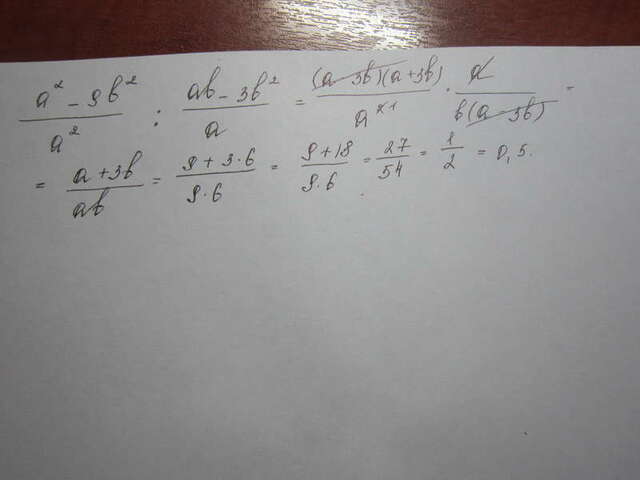 (a² - 9b²)/a² : (ab - 3b²)/a = (a - 3b)(a + 3b)/a²¹ · a/b(a - 3b) =
= (a + 3b)/ab = (9 + 3·6)/9·6 = (9 + 18)/9·6 = 27/54 = 1/2 = 0,5.